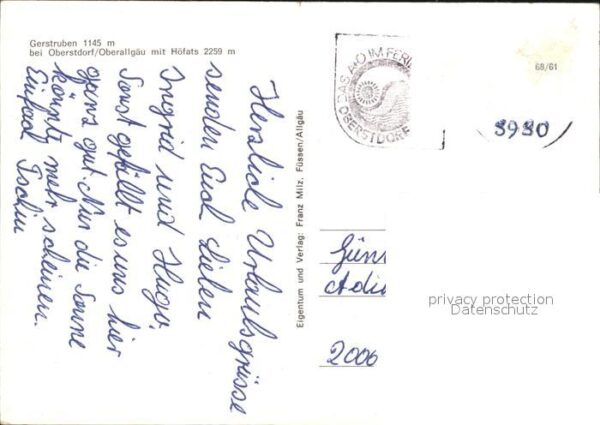 Gerstruben 1145 m
bei Oberstdorf/Oberallgäu mit Höfats 2259 m
Herzliche Urlaubsgrüsse
senden Euch Lieben
Ingrid und Hugo.
Sonst gefällt es uns hier
ganz gut. Nur die Sonne
könnte mehr scheinen.
Einfach
Eigentum und Verlag: Franz Milz, Füssen/Allgäu
DAS AO IM FERI
OBERSTDORF
68/61
3930
Gün
2000
privacy protection
Datenschutz